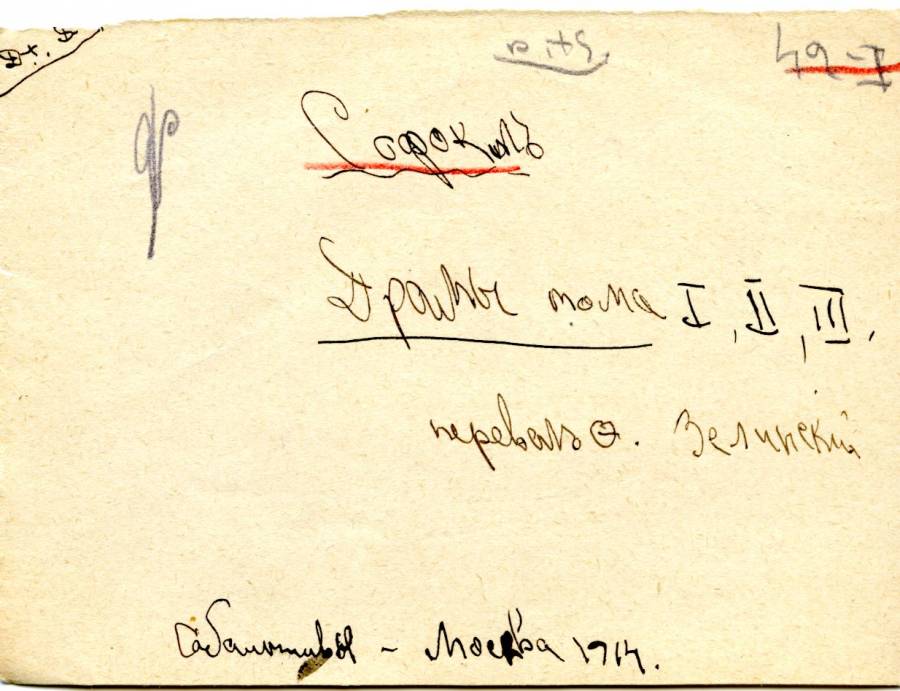 Софоклъ
Драмы тома I, II, III,
перевелъ Ѳ. Зелинскій
Сабашниковы - Москва 1914.